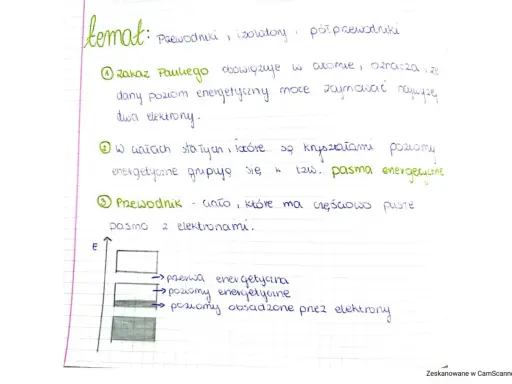 temat: Przewodniki, izolatory, półprzewodniki
① zakaz Pauliego obowiązuje w atomie, oznacza, że
dany poziom energetyczny może zajmować najwyżej
dwa elektrony.
② w ciałach stałych, które są kryształami poziomy
energetyczne grupują się w tzw. pasma energetyczne
③ Przewodnik - ciało, które ma częściowo puste
pasmo z elektronami.
E
→ przerwa energetyczna
→ poziomy energetyczne
→ poziomy obsadzone przez elektrony
Zeskanowane w CamScanne